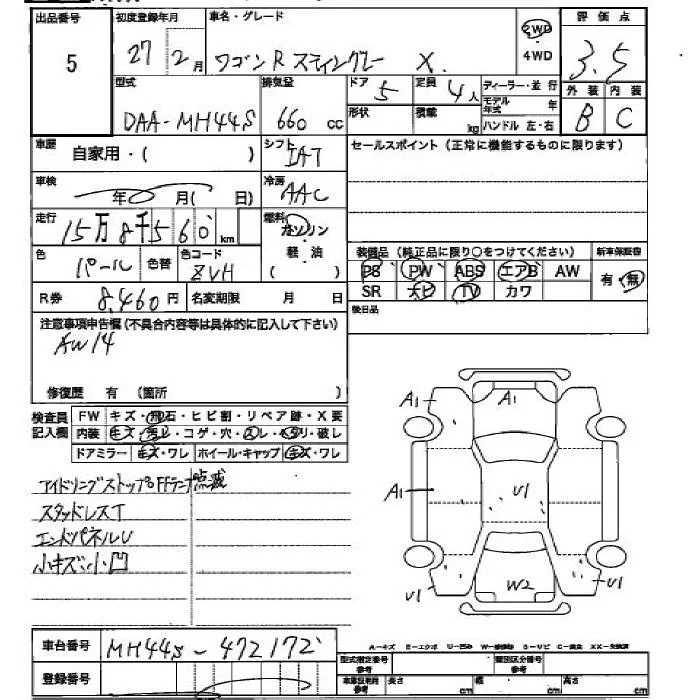 出品番号 5
初度登録年月 27年 2月
車名・グレード ワゴンR スティングレー X
2WD・4WD
評価点 3.5
型式 DAA-MH44S
排気量 660cc
ドア 5
定員 4人
形状
積載 kg
ディーラー・並行
モデル年式 年
ハンドル 左・右
外装 B
内装 C
車歴 自家用・( )
シフト IAT
セールスポイント (正常に機能するものに限ります)
車検 年 月( 日)
冷房 AAC
走行 15万8千560km
燃料 ガソリン・軽油( )
色 パール 色替
色コード ZVH
装備品 (純正品に限り○をつけてください)
新車保証書 有・無
PS PW ABS エアB AW
SR ナビ TV カワ
R券 8,460円
名変期限 月 日
後日品
注意事項申告欄(不具合内容等は具体的に記入して下さい)
AW14
修復歴 有 (箇所 )
検査員記入欄
FW キズ・飛石・ヒビ割・リペア跡・X要
内装 キズ・汚レ・コゲ・穴・スレ・ヘタリ・破レ
ドアミラー キズ・ワレ ホイール・キャップ キズ・ワレ
アイドリングストップOFFランプ点滅
スタッドレスT
エンドパネルU
小キズ・小凹
A1 A1
A1 U1
U1 W2 U1
車台番号 MH44S-472172
登録番号
A-キズ E-エクボ U-凹み W-補修跡 S-サビ C-腐食 XX-交換済
型式指定番号 参考
類別区分番号 参考
車庫証明用 参考 長さ cm 幅 cm 高さ cm